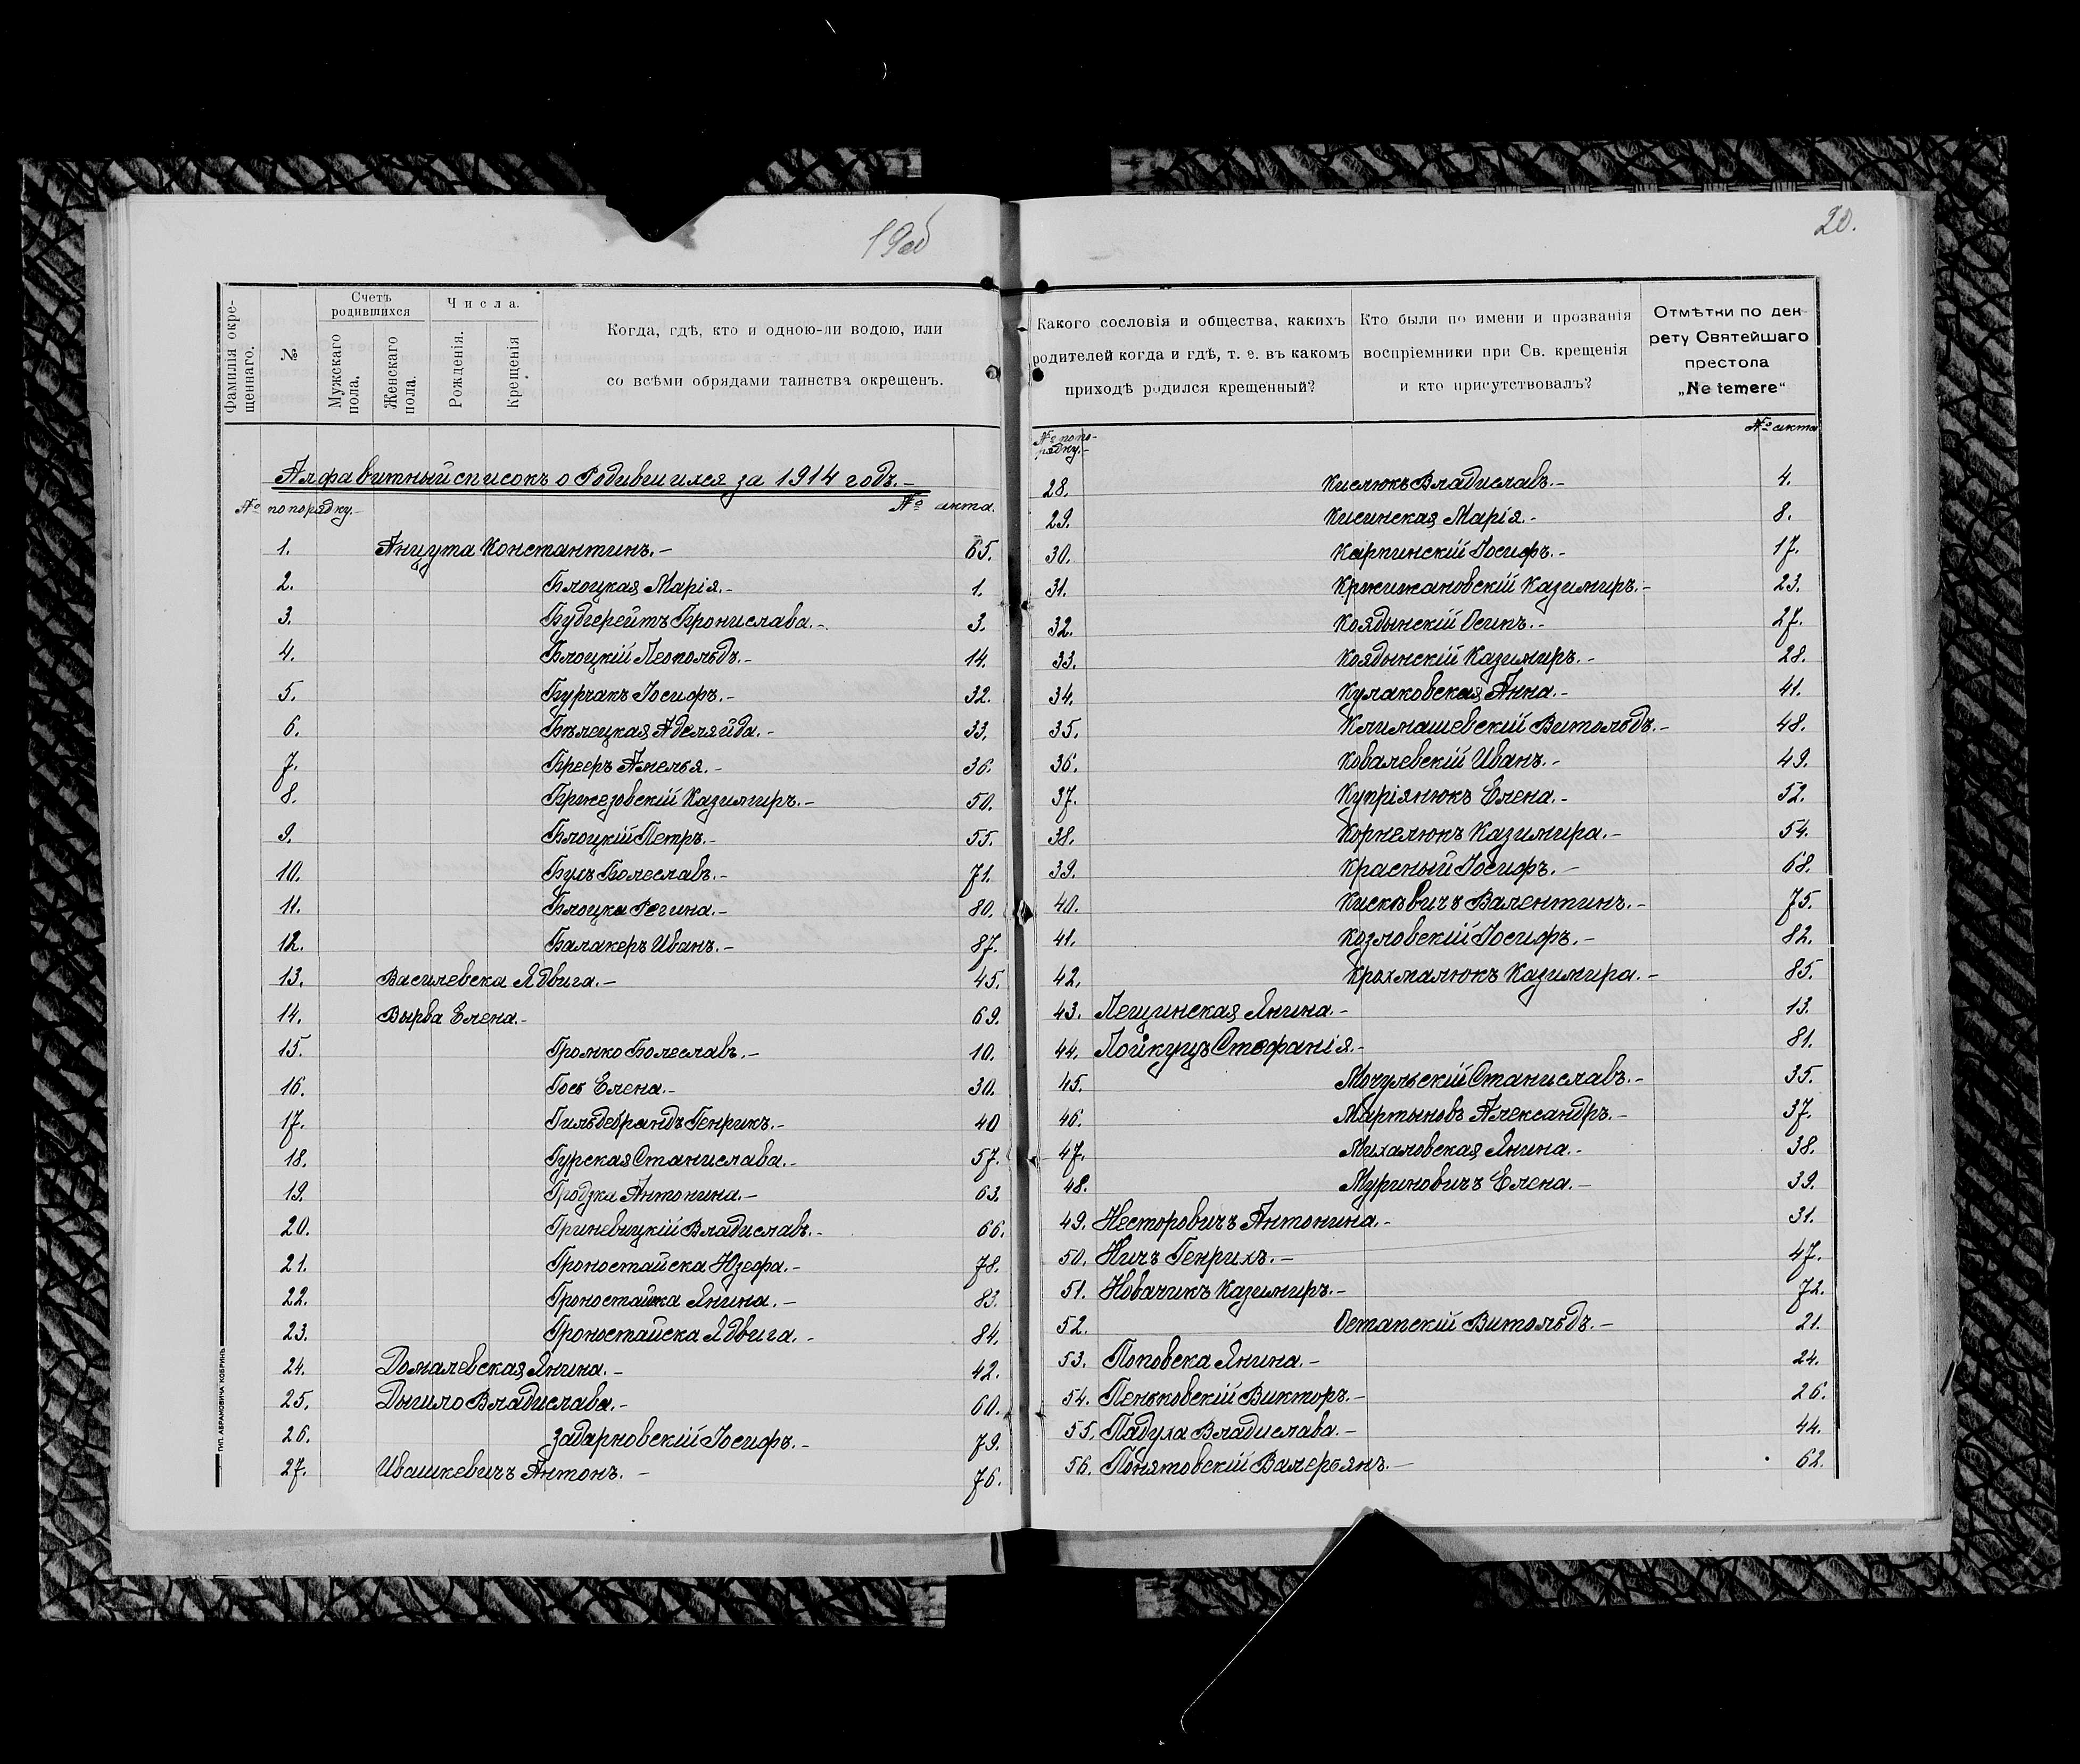 19об
Фамилія окре-
щеннаго.
№
Счетъ
родившихся
Мужскаго
пола.
Женскаго
пола.
Числа.
Рожденія.
Крещенія
Когда, гдѣ, кто и одною-ли водою, или
со всѣми обрядами таинства окрещенъ.
Алфавитный списокъ о Родившихся за 1914 годъ.-
№ по порядку.- № акта.
1. Анцута Константинъ.- 65.
2. Блоцкая Марія.- 1.
3. Будгерейтъ Бронислава.- 3.
4. Блоцкій Леопольдъ.- 14.
5. Бурчакъ Іосифъ.- 32.
6. Бѣлецкая Аделяйда.- 33.
7. Брееръ Амелья.- 36.
8. Бржезовскій Казимиръ.- 50.
9. Блоцкій Петръ.- 55.
10. Буль Болеславъ.- 71.
11. Блоцка Регина.- 80.
12. Балакеръ Иванъ.- 87.
13. Василевска Ядвига.- 45.
14. Вырва Елена.- 69.
15. Громко Болеславъ.- 10.
16. Гось Елена.- 30.
17. Гильдебрандъ Генрикъ.- 40
18. Гурская Станислава.- 57.
19. Гродзка Антонина.- 63.
20. Гриневицкій Владиславъ.- 66.
21. Гроностайска Юзефа.- 78.
22. Гроностайка Янина.- 83.
23. Гроностайска Ядвига.- 84.
24. Домалевская Янина.- 42.
25. Дыгило Владислава.- 60.
26. Задарновскій Іосифъ.- 79.
27. Ивашкевичъ Антонъ.- 76.
ТИП. АБРАМОВИЧА КОБРИНЪ
20.
Какого сословія и общества, какихъ
родителей когда и гдѣ, т. е. въ какомъ
приходѣ родился крещенный?
Кто были по имени и прозванія
воспріемники при Св. крещенія
и кто присутствовалъ?
Отмѣтки по дек-
рету Святейшаго
престола
„Ne temere“
№ по по-
рядку.- № акта
28. Кислюкъ Владиславъ.- 4.
29. Кисинская Марія.- 8.
30. Карпинскій Іосифъ.- 17.
31. Кржижановскій Казимиръ.- 23.
32. Коядынскій Осипъ.- 27.
33. Коядынскій Казимиръ.- 28.
34. Кулаковская Анна.- 41.
35. Климашевскій Витольдъ.- 48.
36. Ковалевскій Иванъ.- 49.
37. Купріянюкъ Елена.- 52.
38. Корнелюкъ Казимира.- 54.
39. Красный Іосифъ.- 68.
40. Кискѣвичъ Валентинъ.- 75.
41. Козловскій Іосифъ.- 82.
42. Крохмалюкъ Казимира.- 85.
43. Лещинская Янина.- 13.
44. Лойкуцъ Стефанія.- 81.
45. Мочульскій Станиславъ.- 35.
46. Мартыновъ Александръ.- 37.
47. Михаловская Янина.- 38.
48. Муриновичъ Елена.- 39.
49. Несторовичъ Антонина.- 31.
50. Ничъ Генрихъ.- 47.
51. Новачикъ Казимиръ.- 72.
52. Остапскій Витольдъ.- 21.
53. Поповска Янина.- 24.
54. Пеньковскій Викторъ.- 26.
55. Падуха Владислава.- 44.
56. Понятовскій Валерьянъ.- 62.